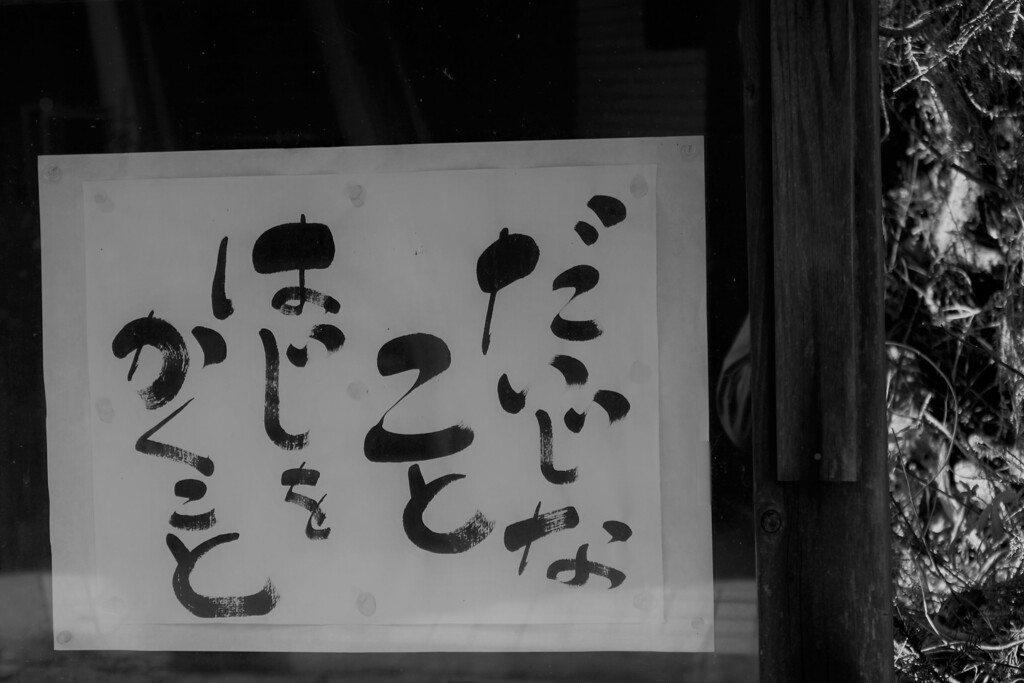 だいじな
こと
はじを
かくこと